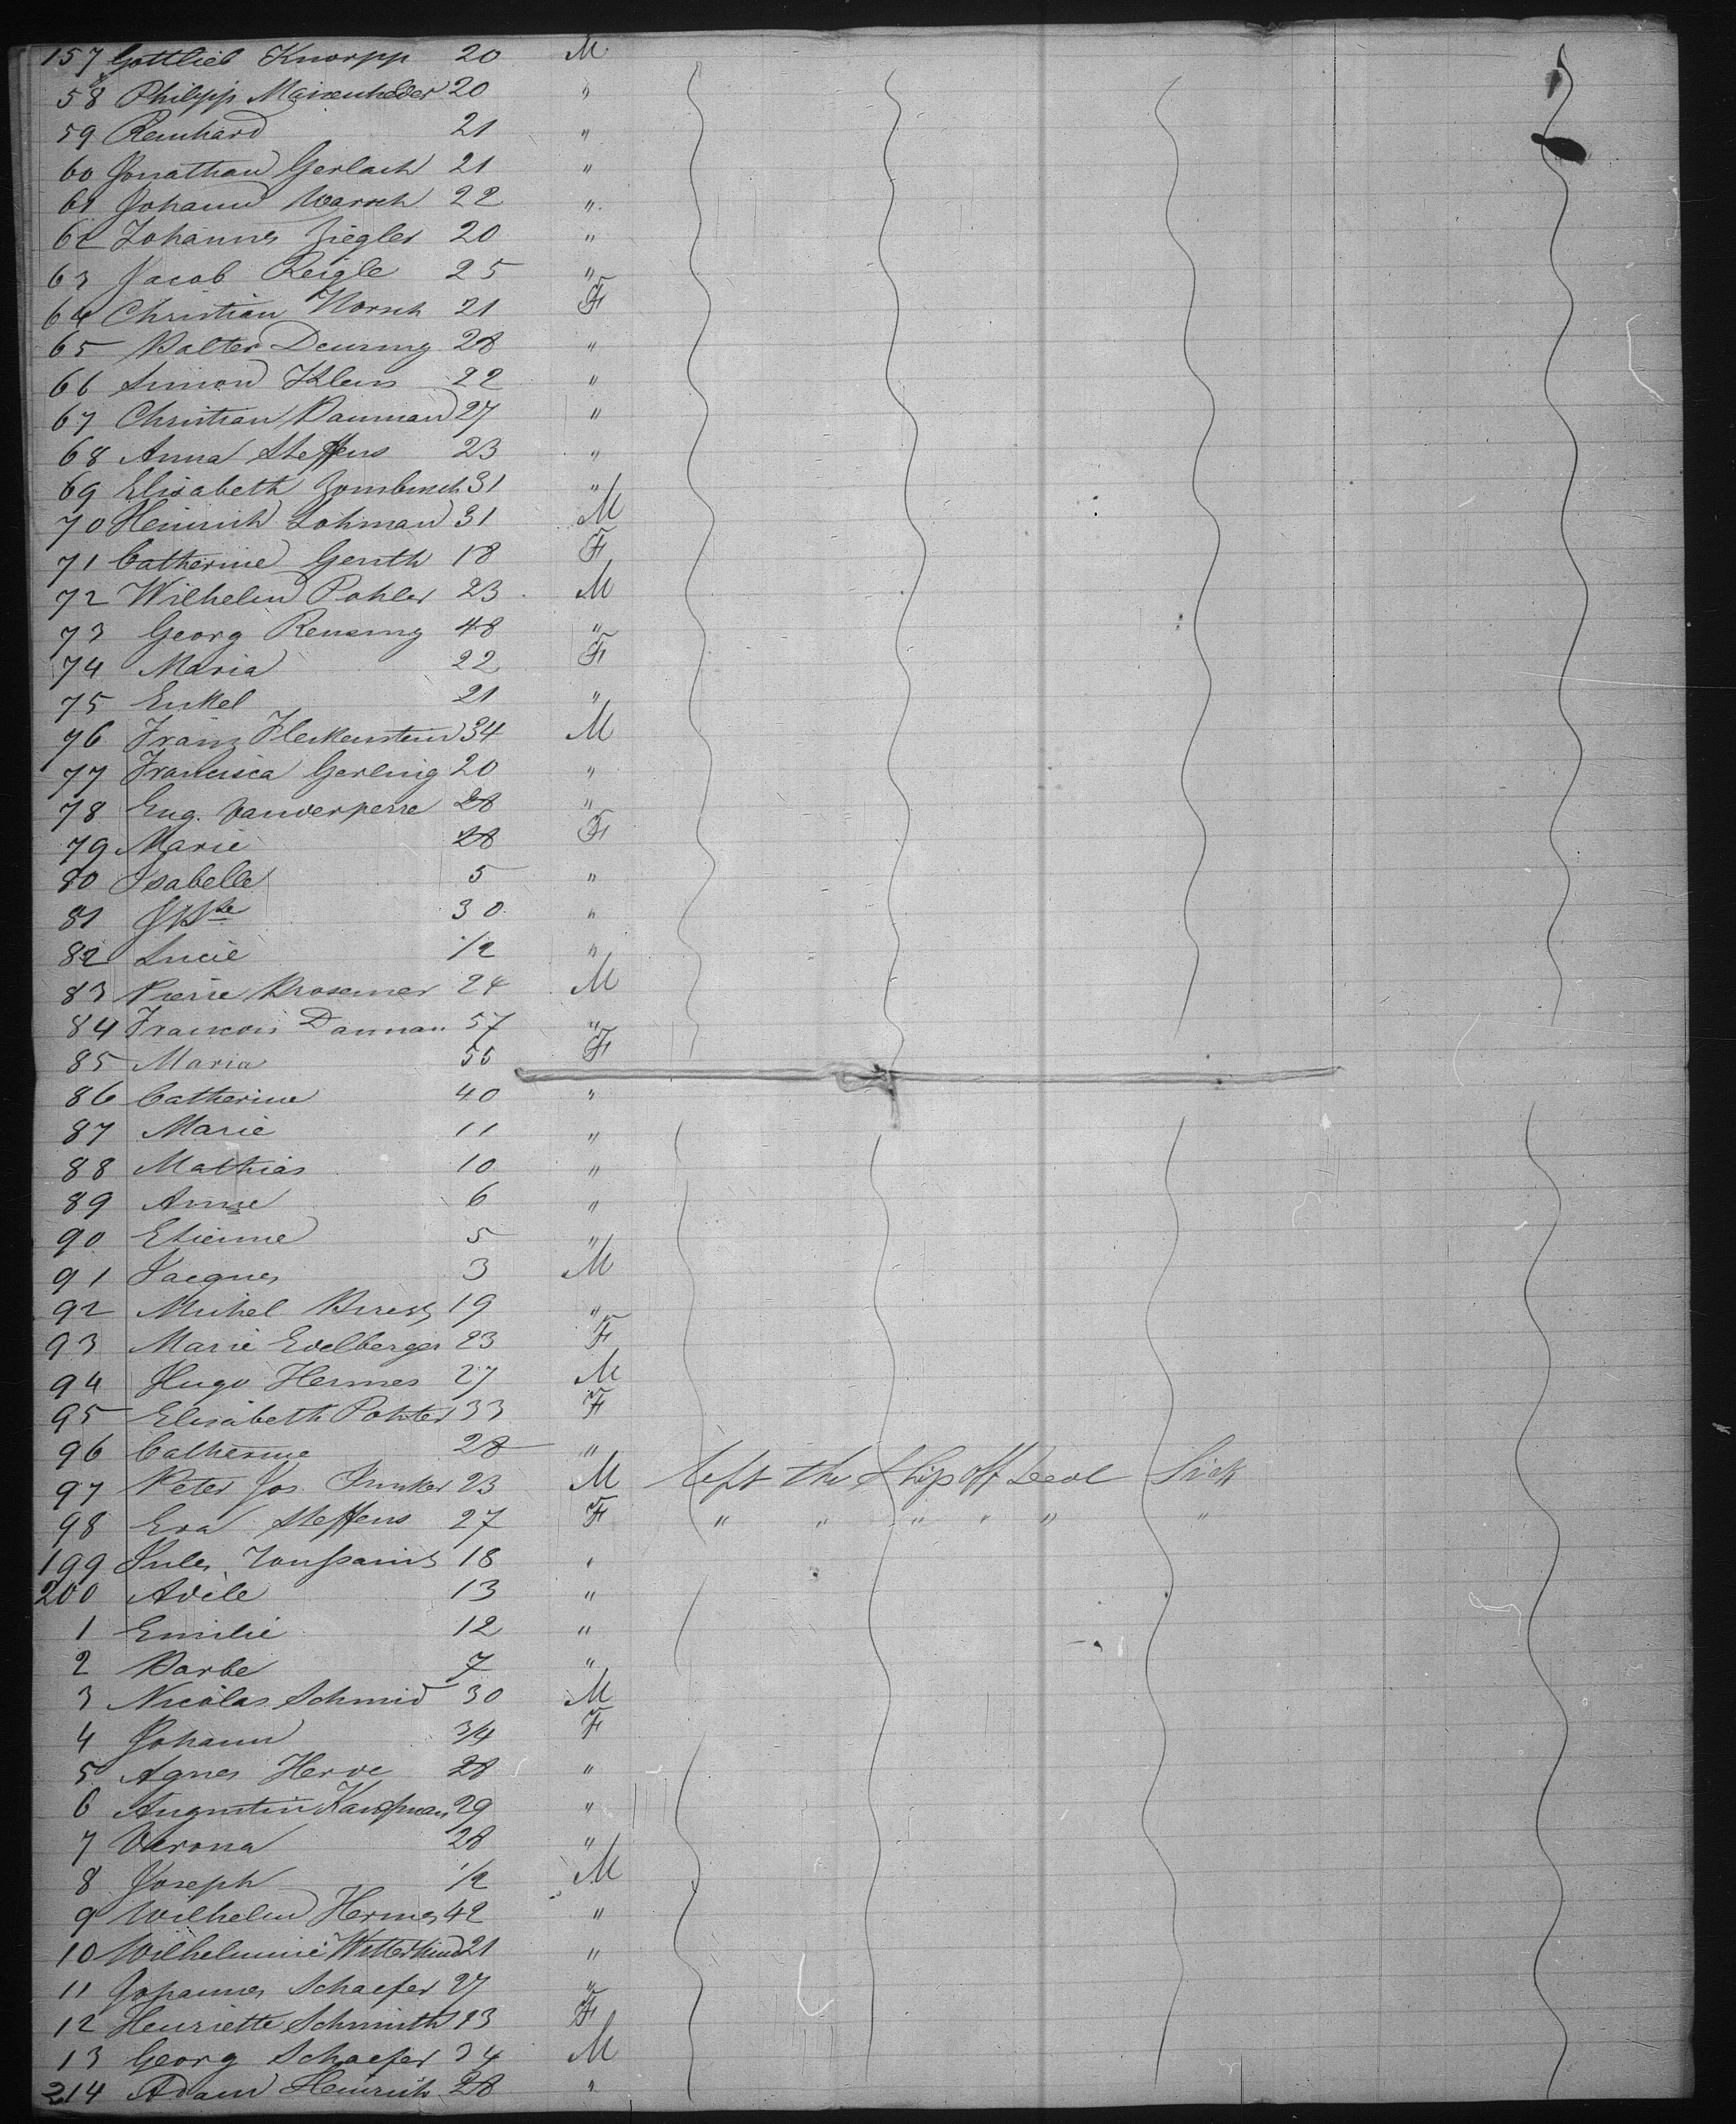 157 Gottlieb Knorpp 20 M
58 Philipp 20 "
59 Reinhard 21 "
60 Jonathan Gerlach 21 "
61 Johann Warsch 22 "
62 Johannes Ziegler 20 "
63 Jacob Reigle 25 "
64 Christian Horsch 21 F
65 Walter Deuring 28 "
66 Simon Klein 22 "
67 Christian Bauman 27 "
68 Anna Steffens 23 "
69 Elisabeth 31 "
70 Heinrich Lohman 31 M
71 Catherine Genth 18 F
72 Wilhelm Pohler 23 M
73 Georg Rensing 48 "
74 Maria 22 F
75 Enkel 21 "
76 Franz Fleckenstein 34 M
77 Francisca Gerling 20 "
78 Eug. Vanderperre 28 "
79 Marie 28 F
80 Isabelle 5 "
81 30 "
82 Lucie 1/2 "
83 Pierre 24 M
84 Francois Dannau 57 "
85 Maria 55 F
86 Catherine 40 "
87 Marie 11 "
88 Mathias 10 "
89 Anne 6 "
90 Etienne 5 "
91 Jacques 3 M
92 Michel 19 "
93 Marie Edelberger 23 F
94 Hugo Hermes 27 M
95 Elisabeth Pohter 33 F
96 Catherine 28 "
97 Peter Jos. Junker 23 M left the Ship off Deal Sick
98 Eva Steffens 27 F " " " " " "
199 Jules Toussaint 18 "
200 Adèle 13 "
1 Emilie 12 "
2 Barbe 7 "
3 Nicolas Schmid 30 M
4 Johann 3/4 F
5 Agnes Herve 28 "
6 Augustin Kaufman 29 "
7 Verona 28 "
8 Joseph 1/2 M
9 Wilhelm Hermes 42 "
10 Wilhelmine 21 "
11 Johannes Schaefer 27 "
12 Henriette Schmith 23 F
13 Georg Schaefer 34 M
214 Adam Heinrich 28 "